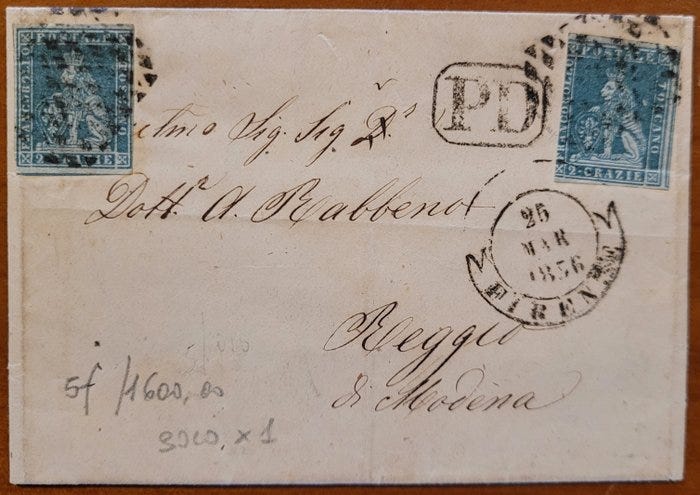 FRANCOBOLLO POSTALE TOSCANO
2 CRAZIE
FRANCOBOLLO POSTALE TOSCANO
2 · CRAZIE
PD
Sig. Sig. D.r
Dott.r A. Rabbeno
25
MAR
1856
FIRENZE
Reggio
di Modena
5f /1600,00
x 1